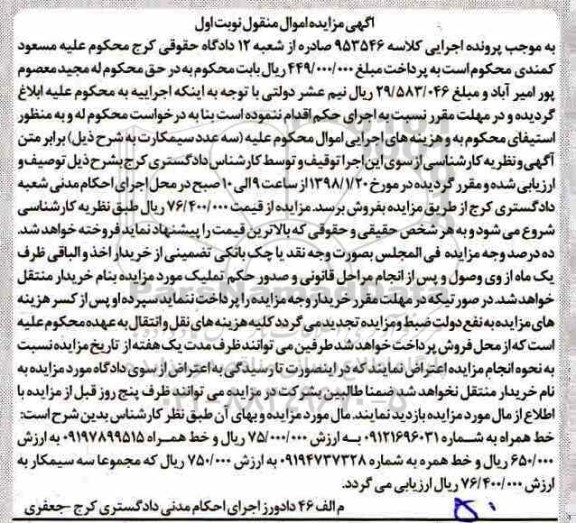 آگهی مزایده اموال منقول نوبت اول
به موجب پرونده اجرایی کلاسه ۹۵۳۵۴۶ صادره از شعبه ۱۲ دادگاه حقوقی کرج محکوم علیه مسعود
کمندی محکوم است به پرداخت مبلغ ۴۴۹/۰۰۰/۰۰۰ ریال بابت محکوم به در حق محکوم له مجید معصوم
پور امیر آباد و مبلغ ۲۹/۵۸۳/۰۴۶ ریال نیم عشر دولتی با توجه به اینکه اجراییه به محکوم علیه ابلاغ
گردیده و در مهلت مقرر نسبت به اجرای حکم اقدام ننموده است بنا به درخواست محکوم له و به منظور
استیفای محکوم به و هزینه های اجرایی اموال محکوم علیه (سه عدد سیمکارت به شرح ذیل) برابر متن
آگهی و نظریه کارشناسی از سوی این اجرا توقیف و توسط کارشناس دادگستری کرج بشرح ذیل توصیف و
ارزیابی شده و مقرر گردیده در مورخ ۱۳۹۸/۱/۲۰ از ساعت ۹ الی ۱۰ صبح در محل اجرای احکام مدنی شعبه
دادگستری کرج از طریق مزایده بفروش برسد. مزایده از قیمت ۷۶/۴۰۰/۰۰۰ ریال طبق نظریه کارشناسی
شروع می شود و به هر شخص حقیقی و حقوقی که بالاترین قیمت را پیشنهاد نماید فروخته خواهد شد.
ده درصد وجه مزایده فی المجلس بصورت وجه نقد یا چک بانکی تضمینی از خریدار اخذ و الباقی ظرف
یک ماه از وی وصول و پس از انجام مراحل قانونی و صدور حکم تملیک مورد مزایده بنام خریدار منتقل
خواهد شد. در صورتیکه در مهلت مقرر خریدار وجه مزایده را پرداخت ننماید سپرده او پس از کسر هزینه
های مزایده به نفع دولت ضبط و مزایده تجدید می گردد کلیه هزینه های نقل و انتقال به عهده محکوم علیه
است که از محل فروش پرداخت خواهد شد طرفین می توانند ظرف مدت یک هفته از تاریخ مزایده نسبت
به نحوه انجام مزایده اعتراض نمایند که در اینصورت تا رسیدگی به اعتراض از سوی دادگاه مورد مزایده به
نام خریدار منتقل نخواهد شد ضمنا طالبین به شرکت در مزایده می توانند ظرف پنج روز قبل از مزایده با
اطلاع از مال مورد مزایده بازدید نمایند. مال مورد مزایده و بهای آن طبق نظر کارشناس بدین شرح است:
خط همراه به شماره ۰۹۱۲۱۶۹۶۰۳۱ به ارزش ۷۵/۰۰۰/۰۰۰ ریال و خط همراه ۰۹۱۹۷۸۹۹۵۱۵ به ارزش
۶۵۰/۰۰۰ ریال و خط همره به شماره ۰۹۱۹۴۷۳۷۳۲۸ به ارزش ۷۵۰/۰۰۰ ریال که مجموعا سه سیمکار به
ارزش ۷۶/۴۰۰/۰۰۰ ریال ارزیابی می گردد.
م الف ۴۶ دادورز اجرای احکام مدنی دادگستری کرج -جعفری